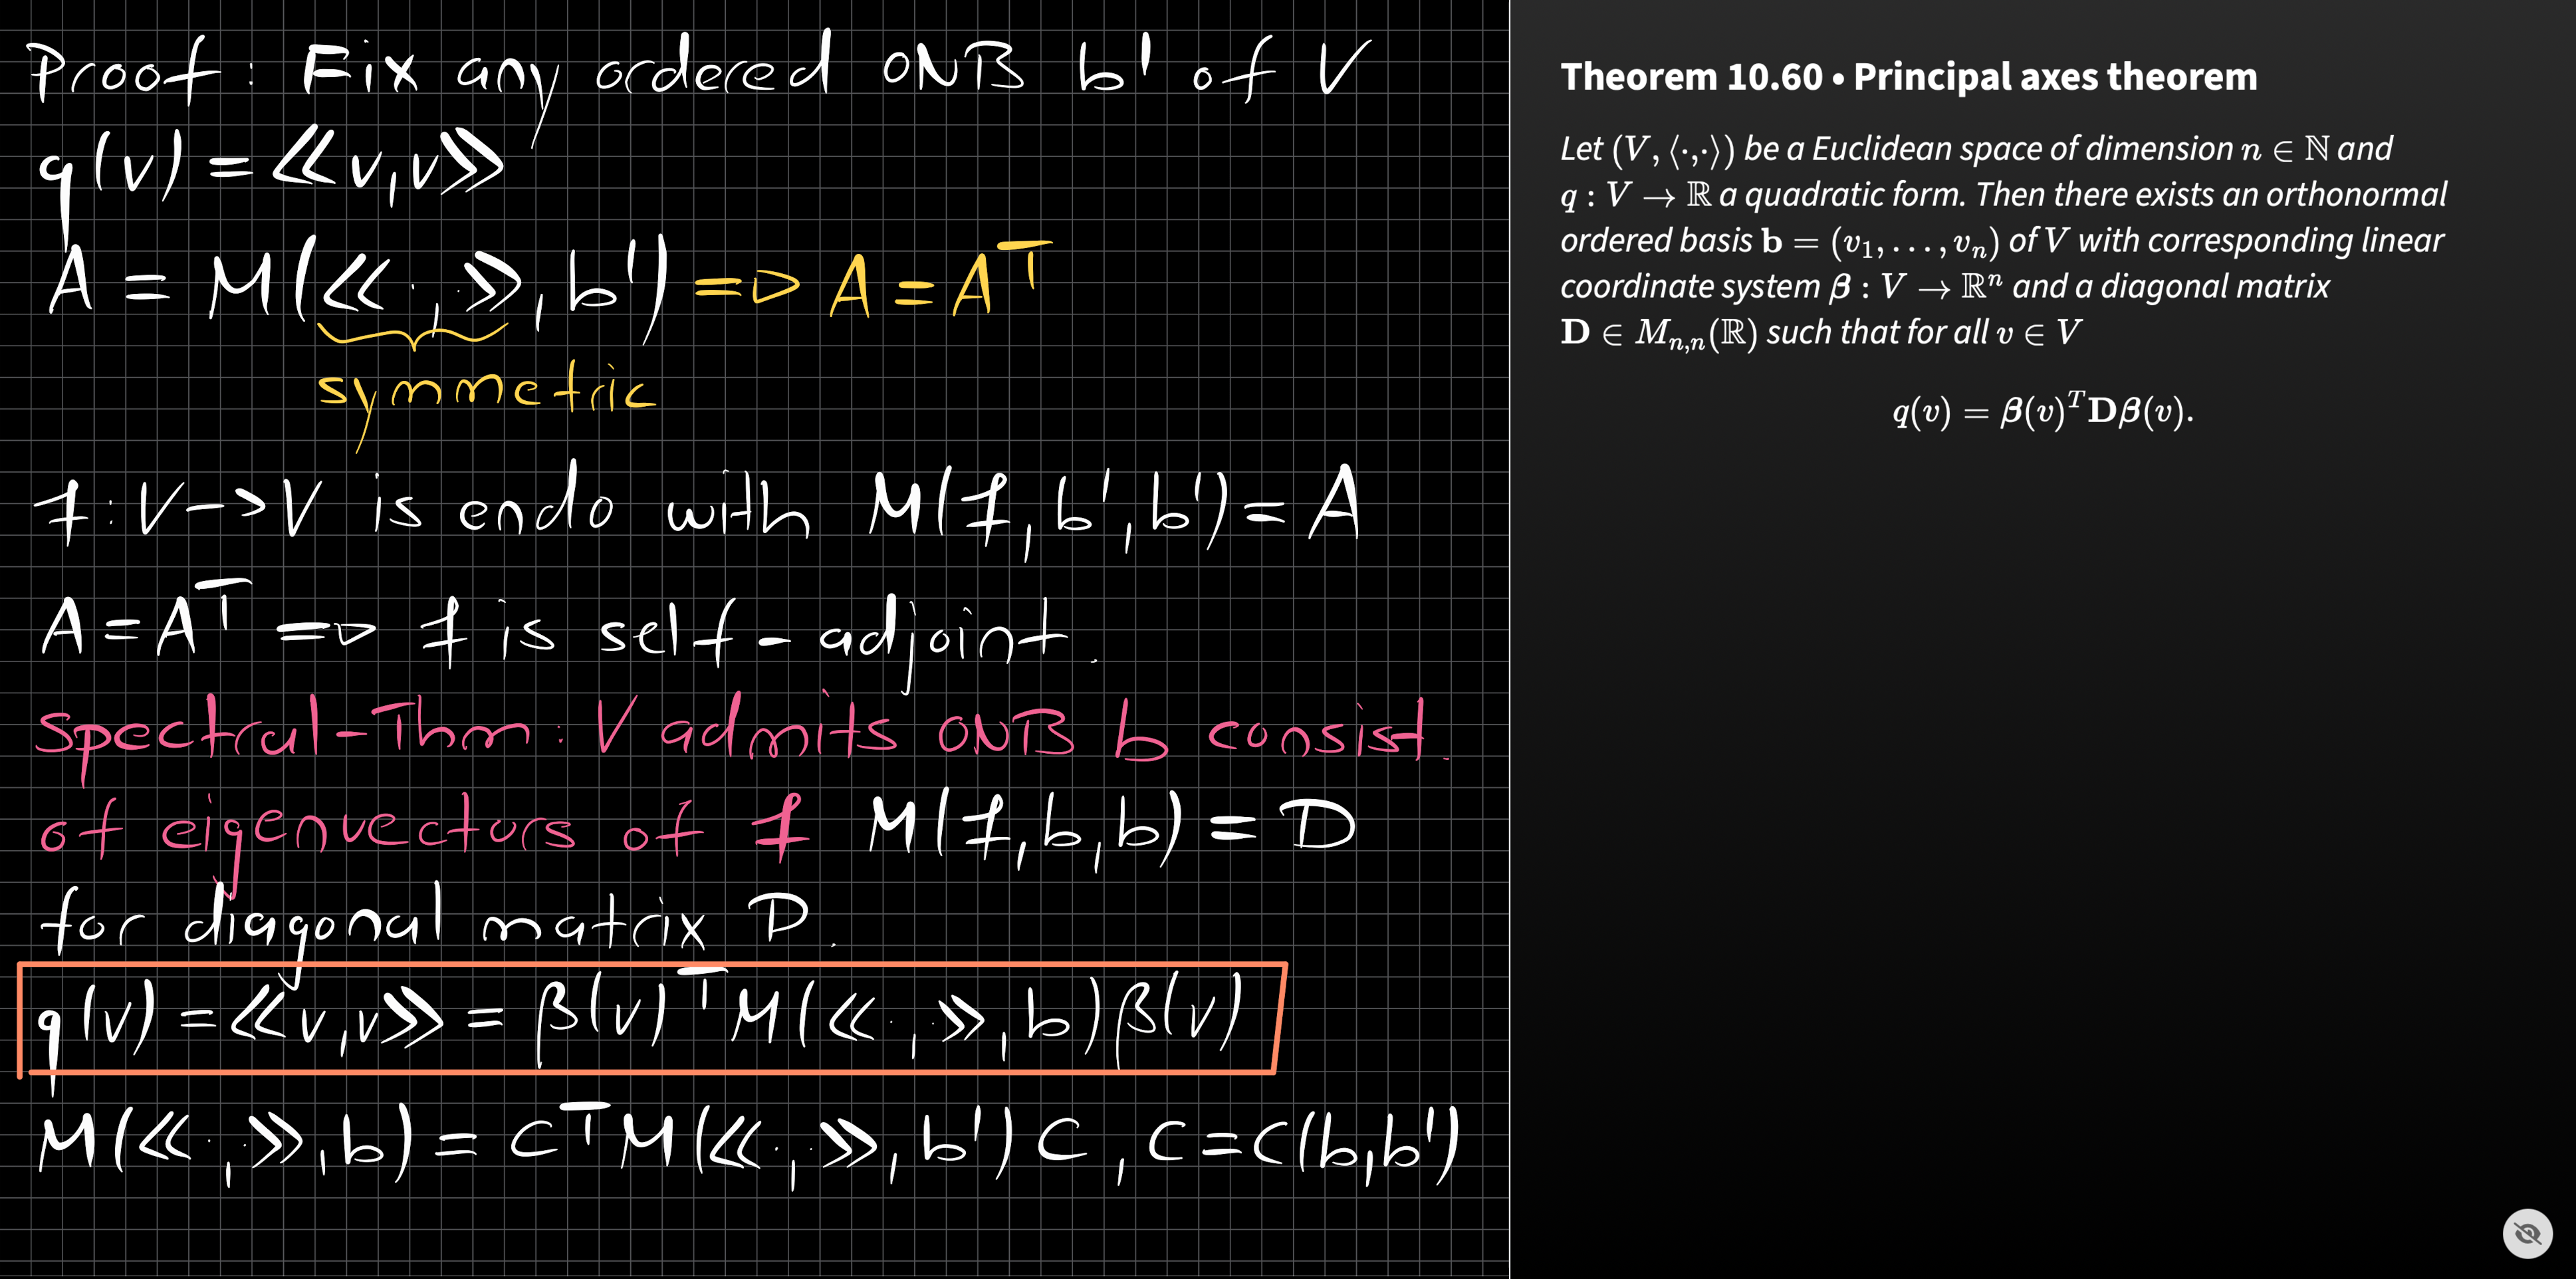 Proof: Fix any ordered ONB b' of V
q(v) = ⟪v,v⟫
A = M(⟪·,·⟫, b') => A = A^T
symmetric
f: V -> V is endo with M(f, b', b') = A
A = A^T => f is self-adjoint.
Spectral-Thm: V admits ONB b consist.
of eigenvectors of f M(f, b, b) = D
for diagonal matrix D.
q(v) = ⟪v,v⟫ = β(v)^T M(⟪·,·⟫, b) β(v)
M(⟪·,·⟫, b) = C^T M(⟪·,·⟫, b') C, C = C(b,b')
Theorem 10.60 • Principal axes theorem
Let (V, ⟨·,·⟩) be a Euclidean space of dimension n ∈ ℕ and
q : V → ℝ a quadratic form. Then there exists an orthonormal
ordered basis b = (v₁, . . . , vₙ) of V with corresponding linear
coordinate system β : V → ℝⁿ and a diagonal matrix
D ∈ M_{n,n}(ℝ) such that for all v ∈ V
q(v) = β(v)^T Dβ(v).